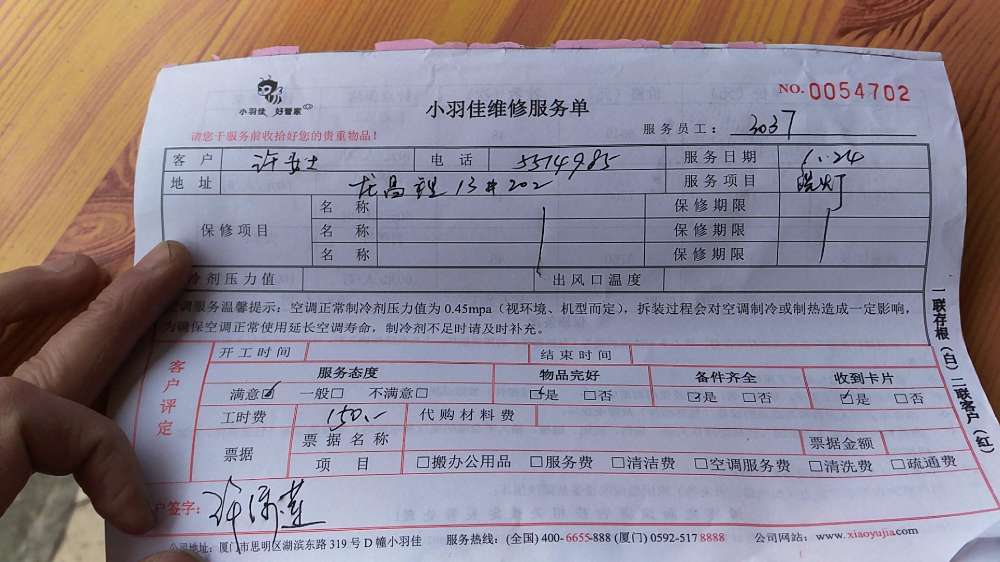 小羽佳 好管家
小羽佳维修服务单
NO. 0054702
请您于服务前收拾好您的贵重物品！
服务员工： 3037
客户 许女士 电话 5514985 服务日期 1.24
地址 龙昌里13#202 服务项目 灯
保修项目 名称 保修期限
名称 保修期限
名称 保修期限
冷剂压力值 出风口温度
调服务温馨提示：空调正常制冷剂压力值为 0.45mpa（视环境、机型而定），拆装过程会对空调制冷或制热造成一定影响，
为确保空调正常使用延长空调寿命，制冷剂不足时请及时补充。
客户评定
开工时间 结束时间
服务态度 物品完好 备件齐全 收到卡片
满意☑ 一般□ 不满意□ ☑是 □否 ☑是 □否 ☑是 □否
工时费 150.- 代购材料费
票据 票据名称 票据金额
项目 □搬办公用品 □服务费 □清洁费 □空调服务费 □清洗费 □疏通费
户签字： 许
公司地址：厦门市思明区湖滨东路 319 号 D 幢小羽佳 服务热线：(全国) 400-6655-888 (厦门) 0592-517 8888 公司网站：www.xiaoyujia.com
一联存根（白）二联客户（红）